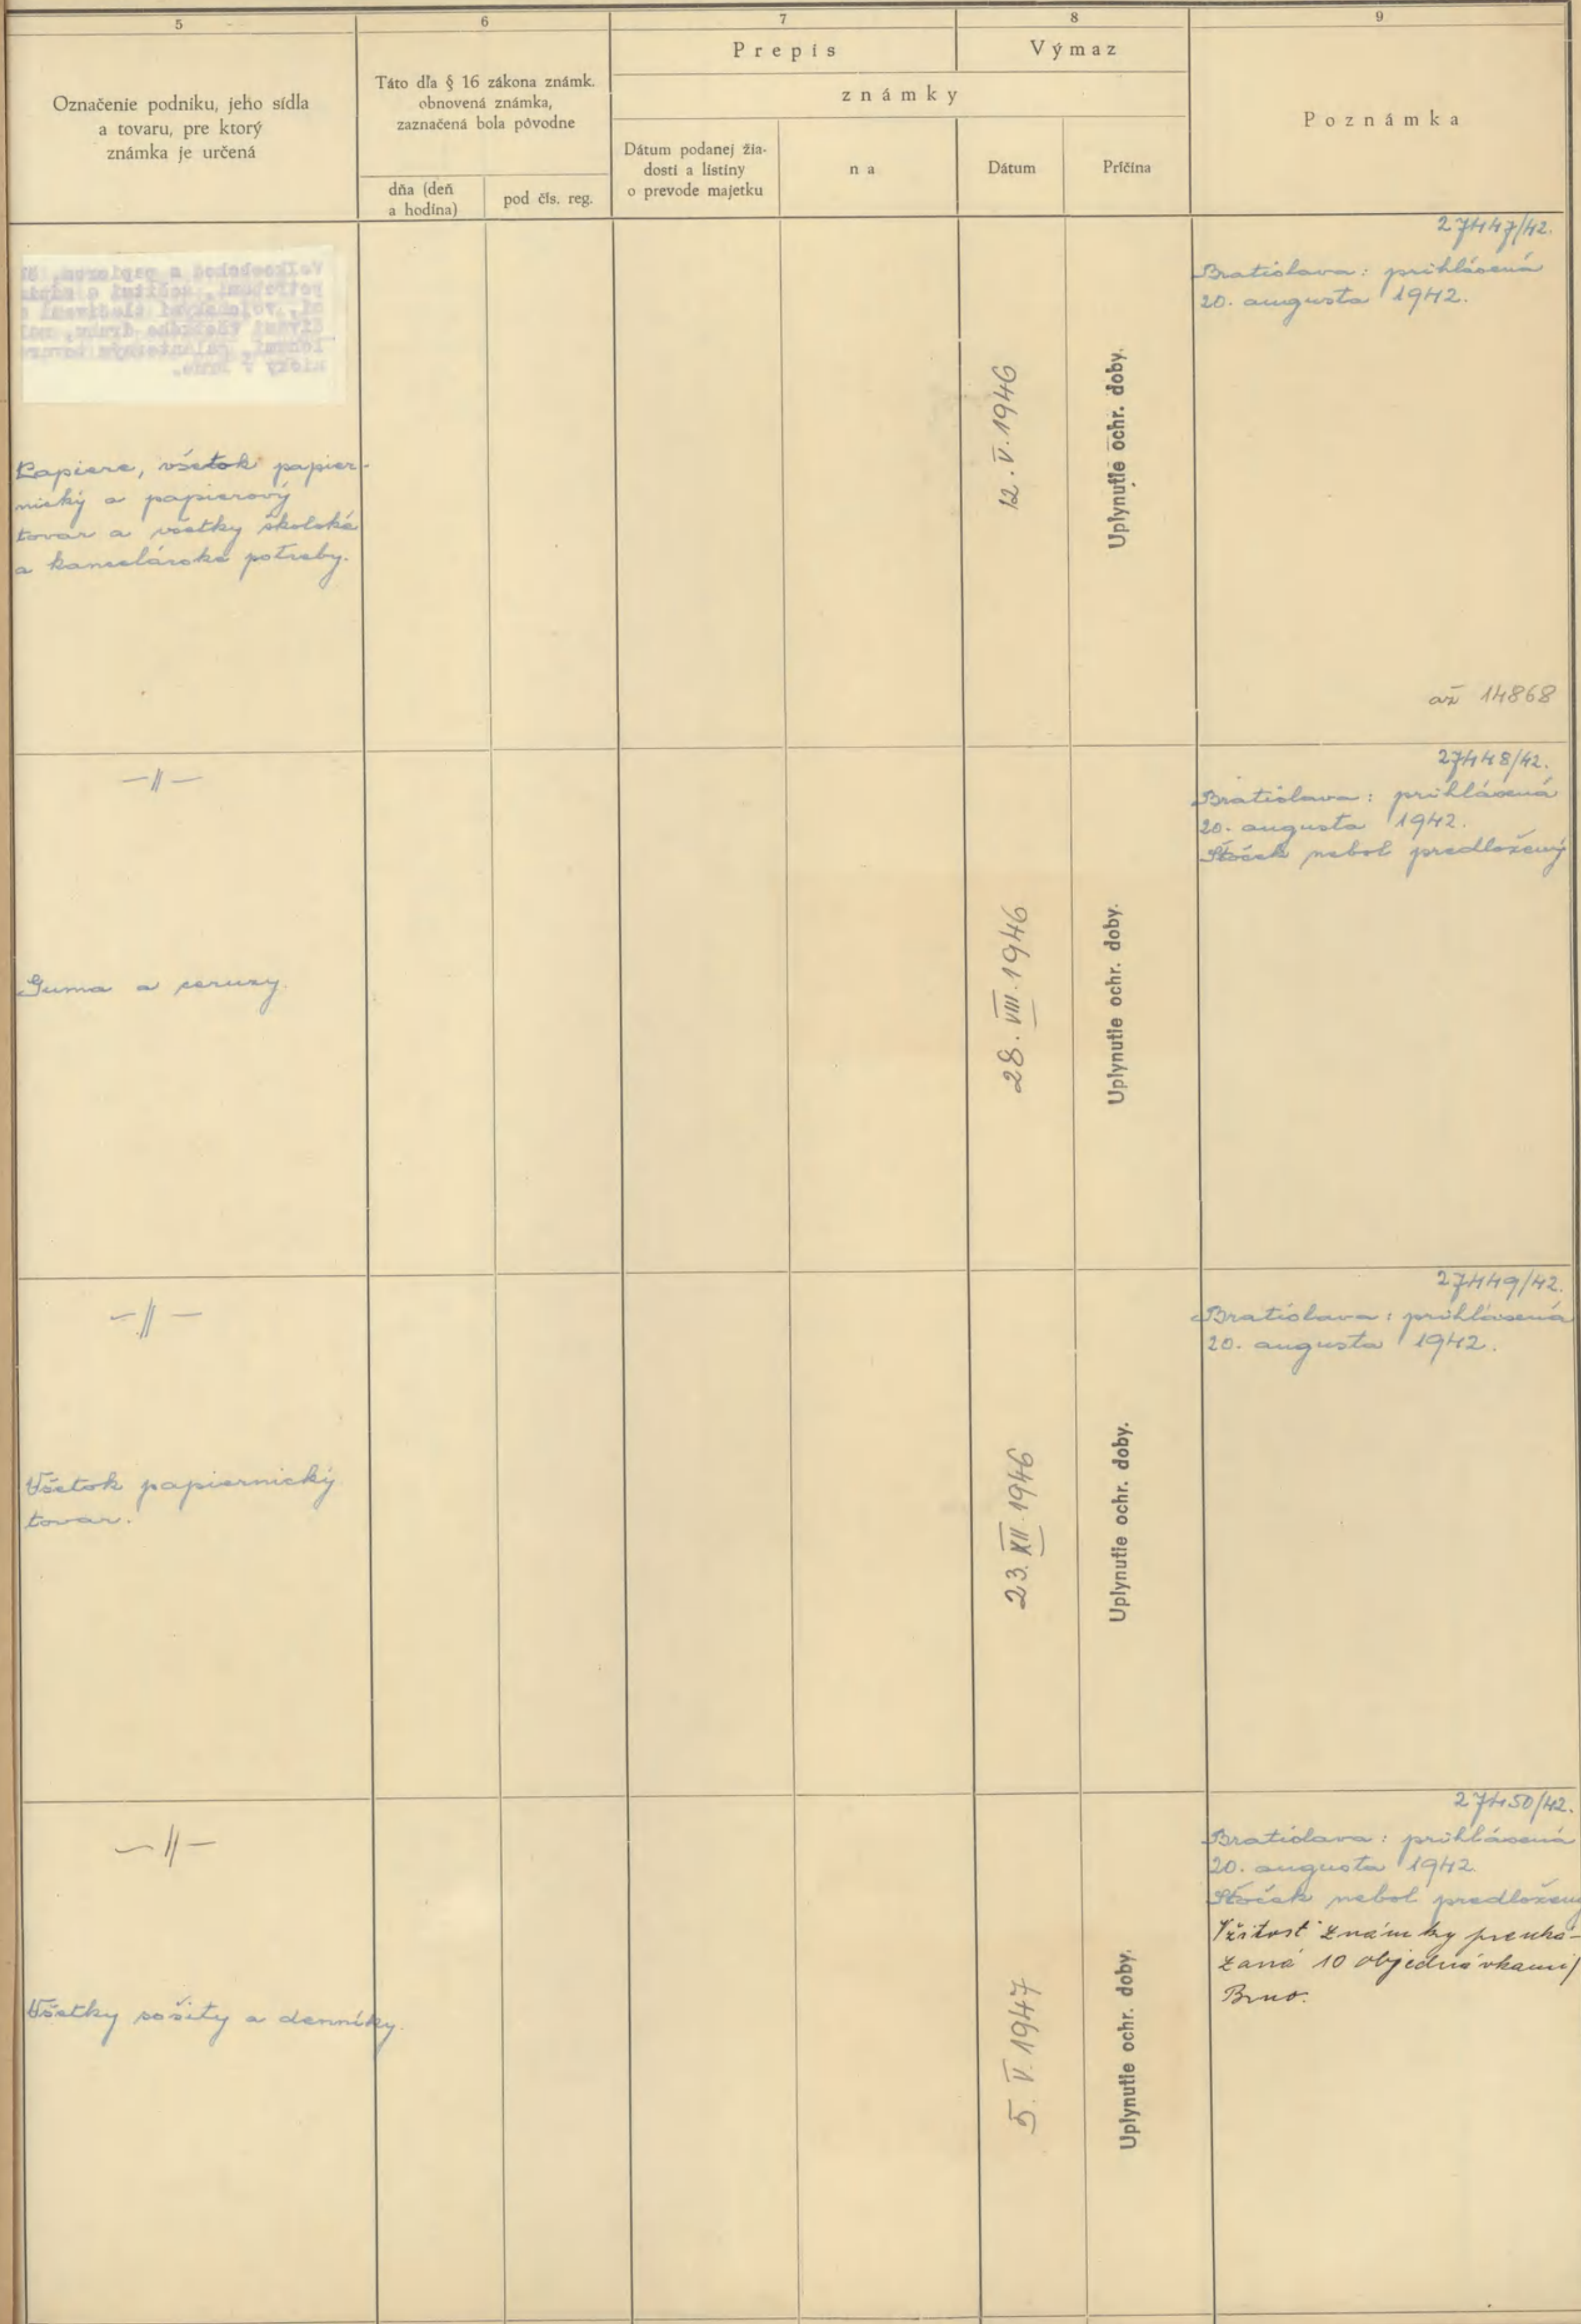 5
6
7
8
9
Označenie podniku, jeho sídla
a tovaru, pre ktorý
známka je určená
Táto dľa § 16 zákona známk.
obnovená známka,
zaznačená bola pôvodne
dňa (deň
a hodina)
pod čís. reg.
Prepis
Výmaz
známky
Dátum podanej žia-
dosti a listiny
o prevode majetku
na
Dátum
Príčina
Poznámka
Papiere, všetok papier-
nický a papierový
tovar a všetky školské
a kancelárske potreby.
12. V. 1946
Uplynutie ochr. doby.
27447/42.
Bratislava: prihlásená
20. augusta 1942.
až 14868
—〃—
Guma a ceruzy.
28. VIII. 1946
Uplynutie ochr. doby.
27448/42.
Bratislava: prihlásená
20. augusta 1942.
Štoček nebol predložený
—〃—
Všetok papiernický
tovar.
23. XII. 1946
Uplynutie ochr. doby.
27449/42.
Bratislava: prihlásená
20. augusta 1942.
—〃—
Všetky sošity a denníky.
5. V. 1947
Uplynutie ochr. doby.
27450/42.
Bratislava: prihlásená
20. augusta 1942.
Štoček nebol predložený
Vžitosť známky preuká-
zaná 10 objednávkami/
Brno.